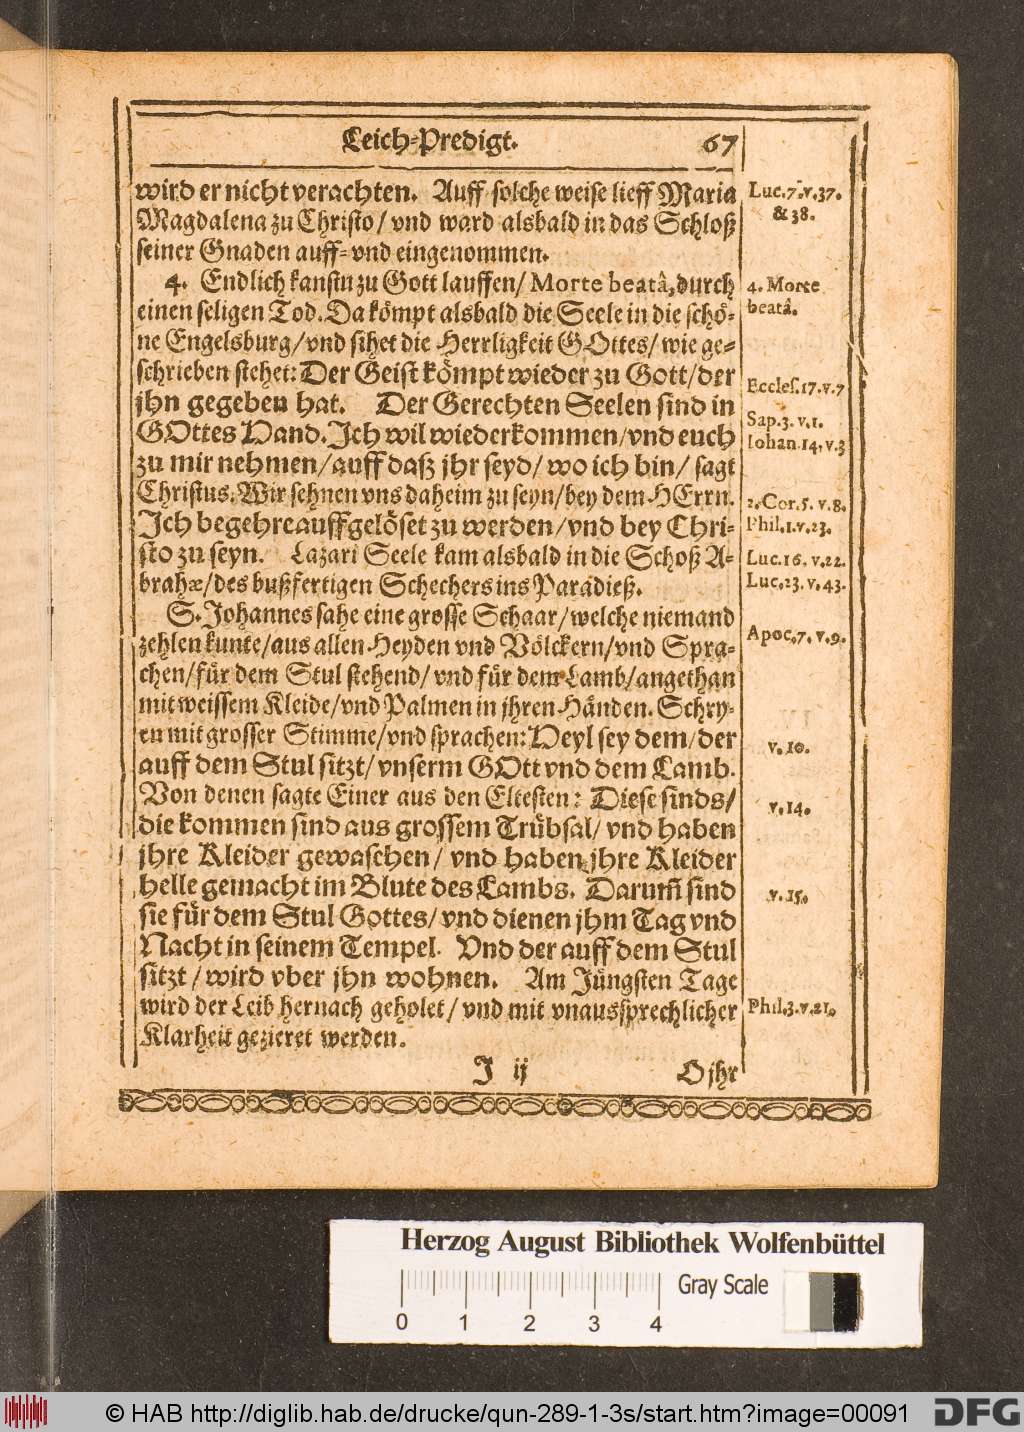 Leich-Predigt. 67
wird er nicht verachten. Auff solche weise lieff Maria
Magdalena zu Christo/ vnd ward alsbald in das Schloß
seiner Gnaden auff- vnd eingenommen.
4. Endlich kanstu zu Gott lauffen/ Morte beatâ, durch
einen seligen Tod. Da kömpt alsbald die Seele in die schö-
ne Engelsburg/ vnd sihet die Herrligkeit GOttes/ wie ge-
schrieben stehet: Der Geist kömpt wieder zu Gott/ der
jhn gegeben hat. Der Gerechten Seelen sind in
GOttes Hand. Ich wil wiederkommen/ vnd euch
zu mir nehmen/ auff daß jhr seyd/ wo ich bin/ sagt
Christus. Wir sehnen vns daheim zu seyn/ bey dem HErrn.
Ich begehre auffgelöset zu werden/ vnd bey Chri-
sto zu seyn. Lazari Seele kam alsbald in die Schoß A-
brahæ/ des bußfertigen Schechers ins Paradieß.
S. Johannes sahe eine grosse Schaar/ welche niemand
zehlen kunte/ aus allen Heyden vnd Völckern/ vnd Spra-
chen/ für dem Stul stehend/ vnd für dem Lamb/ angethan
mit weissem Kleide/ vnd Palmen in jhren Händen. Schry-
en mit grosser Stimme/ vnd sprachen: Heyl sey dem/ der
auff dem Stul sitzt/ vnserm GOtt vnd dem Lamb.
Von denen sagte Einer aus den Eltesten: Diese sinds/
die kommen sind aus grossem Trübsal/ vnd haben
jhre Kleider gewaschen/ vnd haben jhre Kleider
helle gemacht im Blute des Lambs. Darum̃ sind
sie für dem Stul Gottes/ vnd dienen jhm Tag vnd
Nacht in seinem Tempel. Vnd der auff dem Stul
sitzt/ wird vber jhn wohnen. Am Jüngsten Tage
wird der Leib hernach geholet/ vnd mit vnaussprechlicher
Klarheit gezieret werden.
J ij O jhr
Luc. 7. v. 37.
& 38.
4. Morte
beatâ.
Eccles. 17. v. 7
Sap. 3. v. 1.
Iohan 14. v. 3
2. Cor. 5. v. 8.
Phil. 1. v. 23.
Luc. 16. v. 22.
Luc. 23. v. 43.
Apoc. 7. v. 9.
v. 10.
v. 14.
v. 15.
Phil. 3. v. 21.
Herzog August Bibliothek Wolfenbüttel
Gray Scale
0 1 2 3 4
© HAB http://diglib.hab.de/drucke/qun-289-1-3s/start.htm?image=00091
DFG